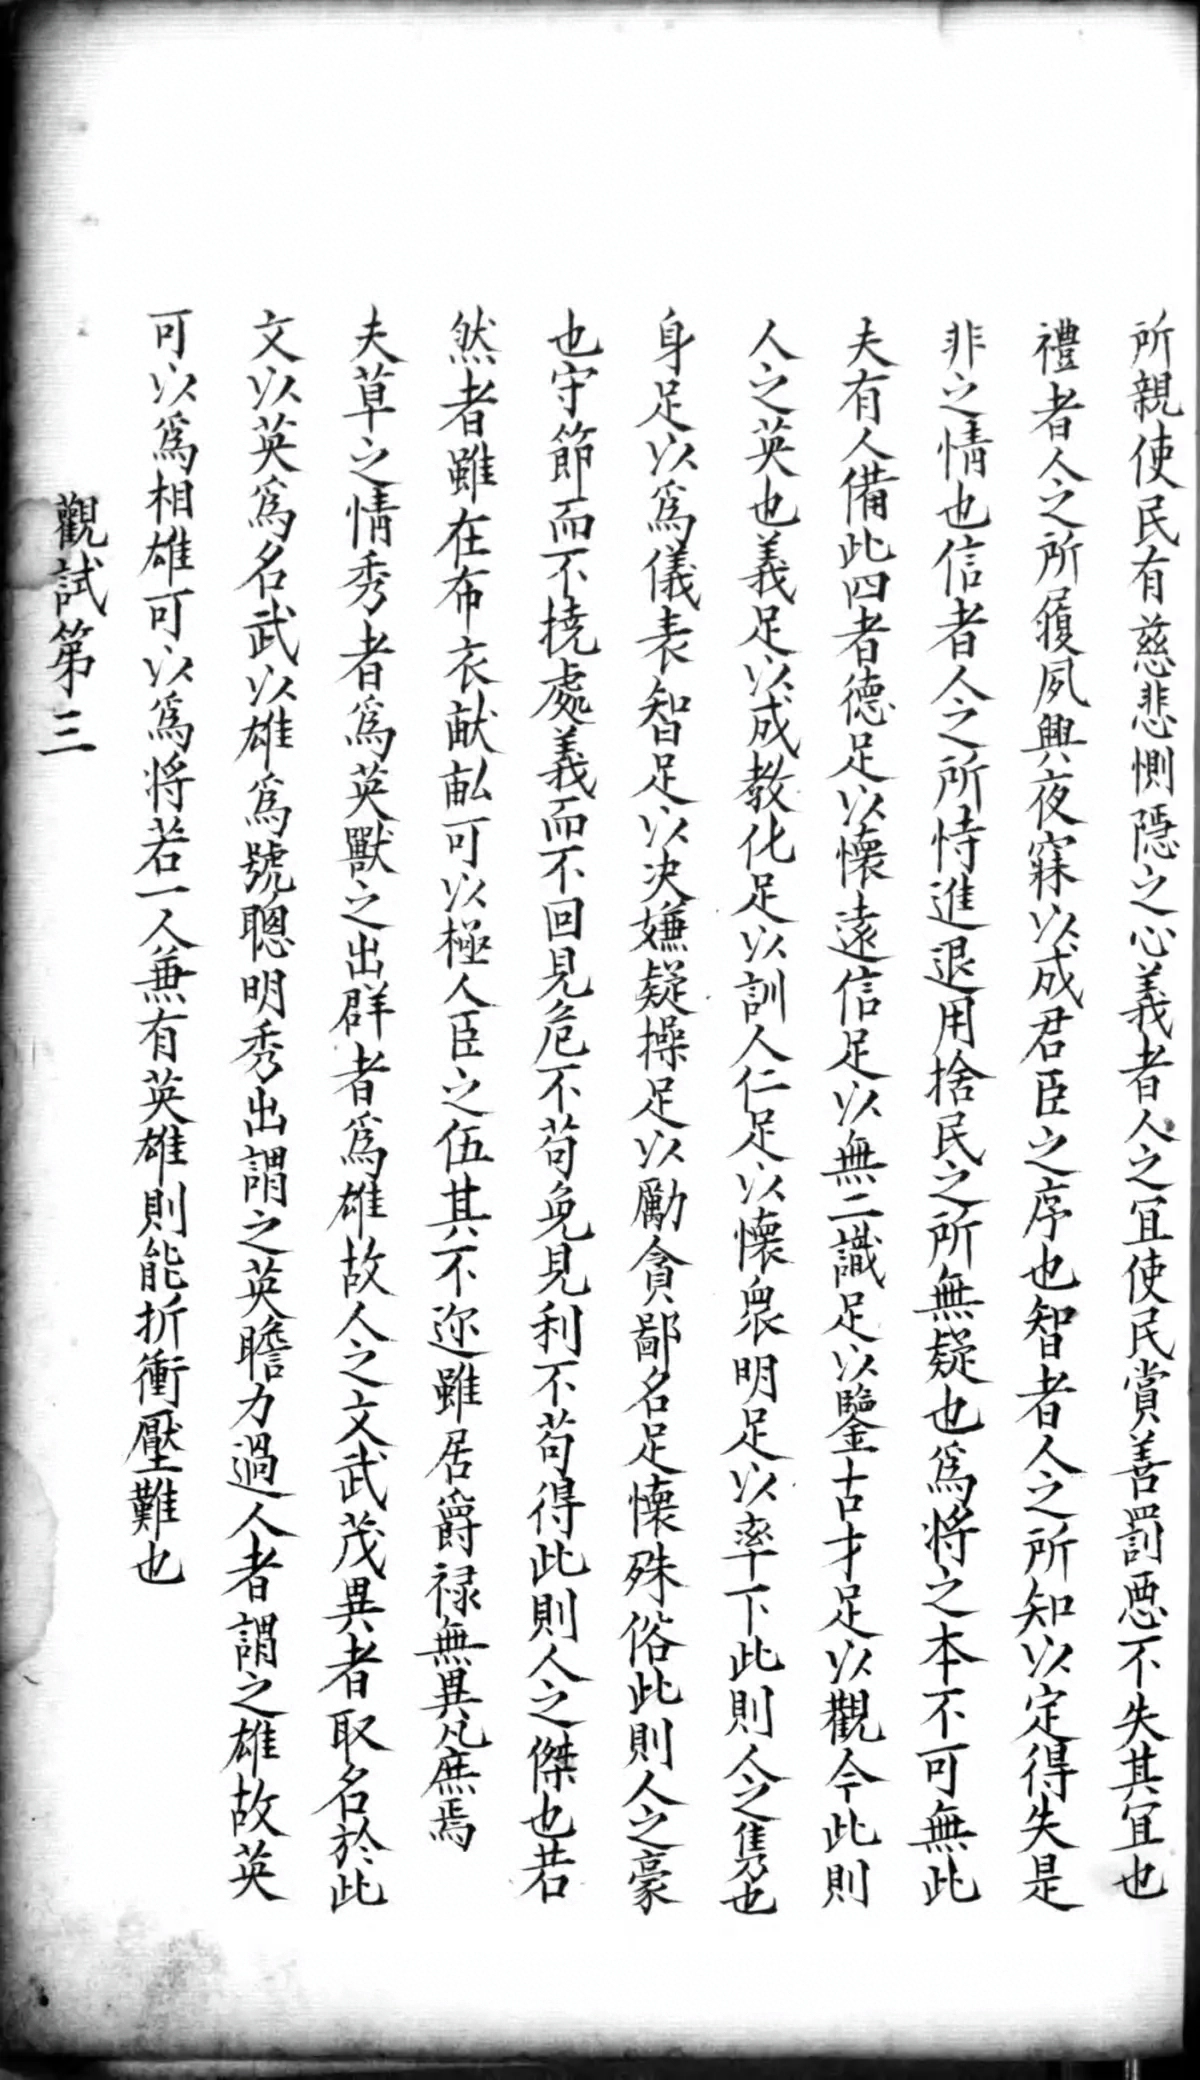 所親使民有慈悲惻隱之心義者人之冝使民賞善罰惡不失其冝也
禮者人之所履夙興夜寐以成君臣之序也智者人之所知以定得失是
非之情也信者人之所恃進退用捨民之所無疑也爲将之本不可無此
夫有人備此四者德足以懷遠信足以無二識足以鑒古才足以觀今此則
人之英也義足以成教化足以訓人仁足以懷衆明足以率下此則人之隽也
身足以爲儀表智足以决嫌疑操足以勵貪鄙名足懷殊俗此則人之豪
也守節而不撓處義而不回見危不苟免見利不苟得此則人之傑也若
然者雖在布衣献畝可以極人臣之伍其不迩雖居爵禄無異凡庶焉
夫草之情秀者爲英獸之出群者爲雄故人之文武茂異者取名於此
文以英爲名武以雄爲號聰明秀出謂之英瞻力過人者謂之雄故英
可以爲相雄可以爲将若一人兼有英雄則能折衝壓難也
觀試第三